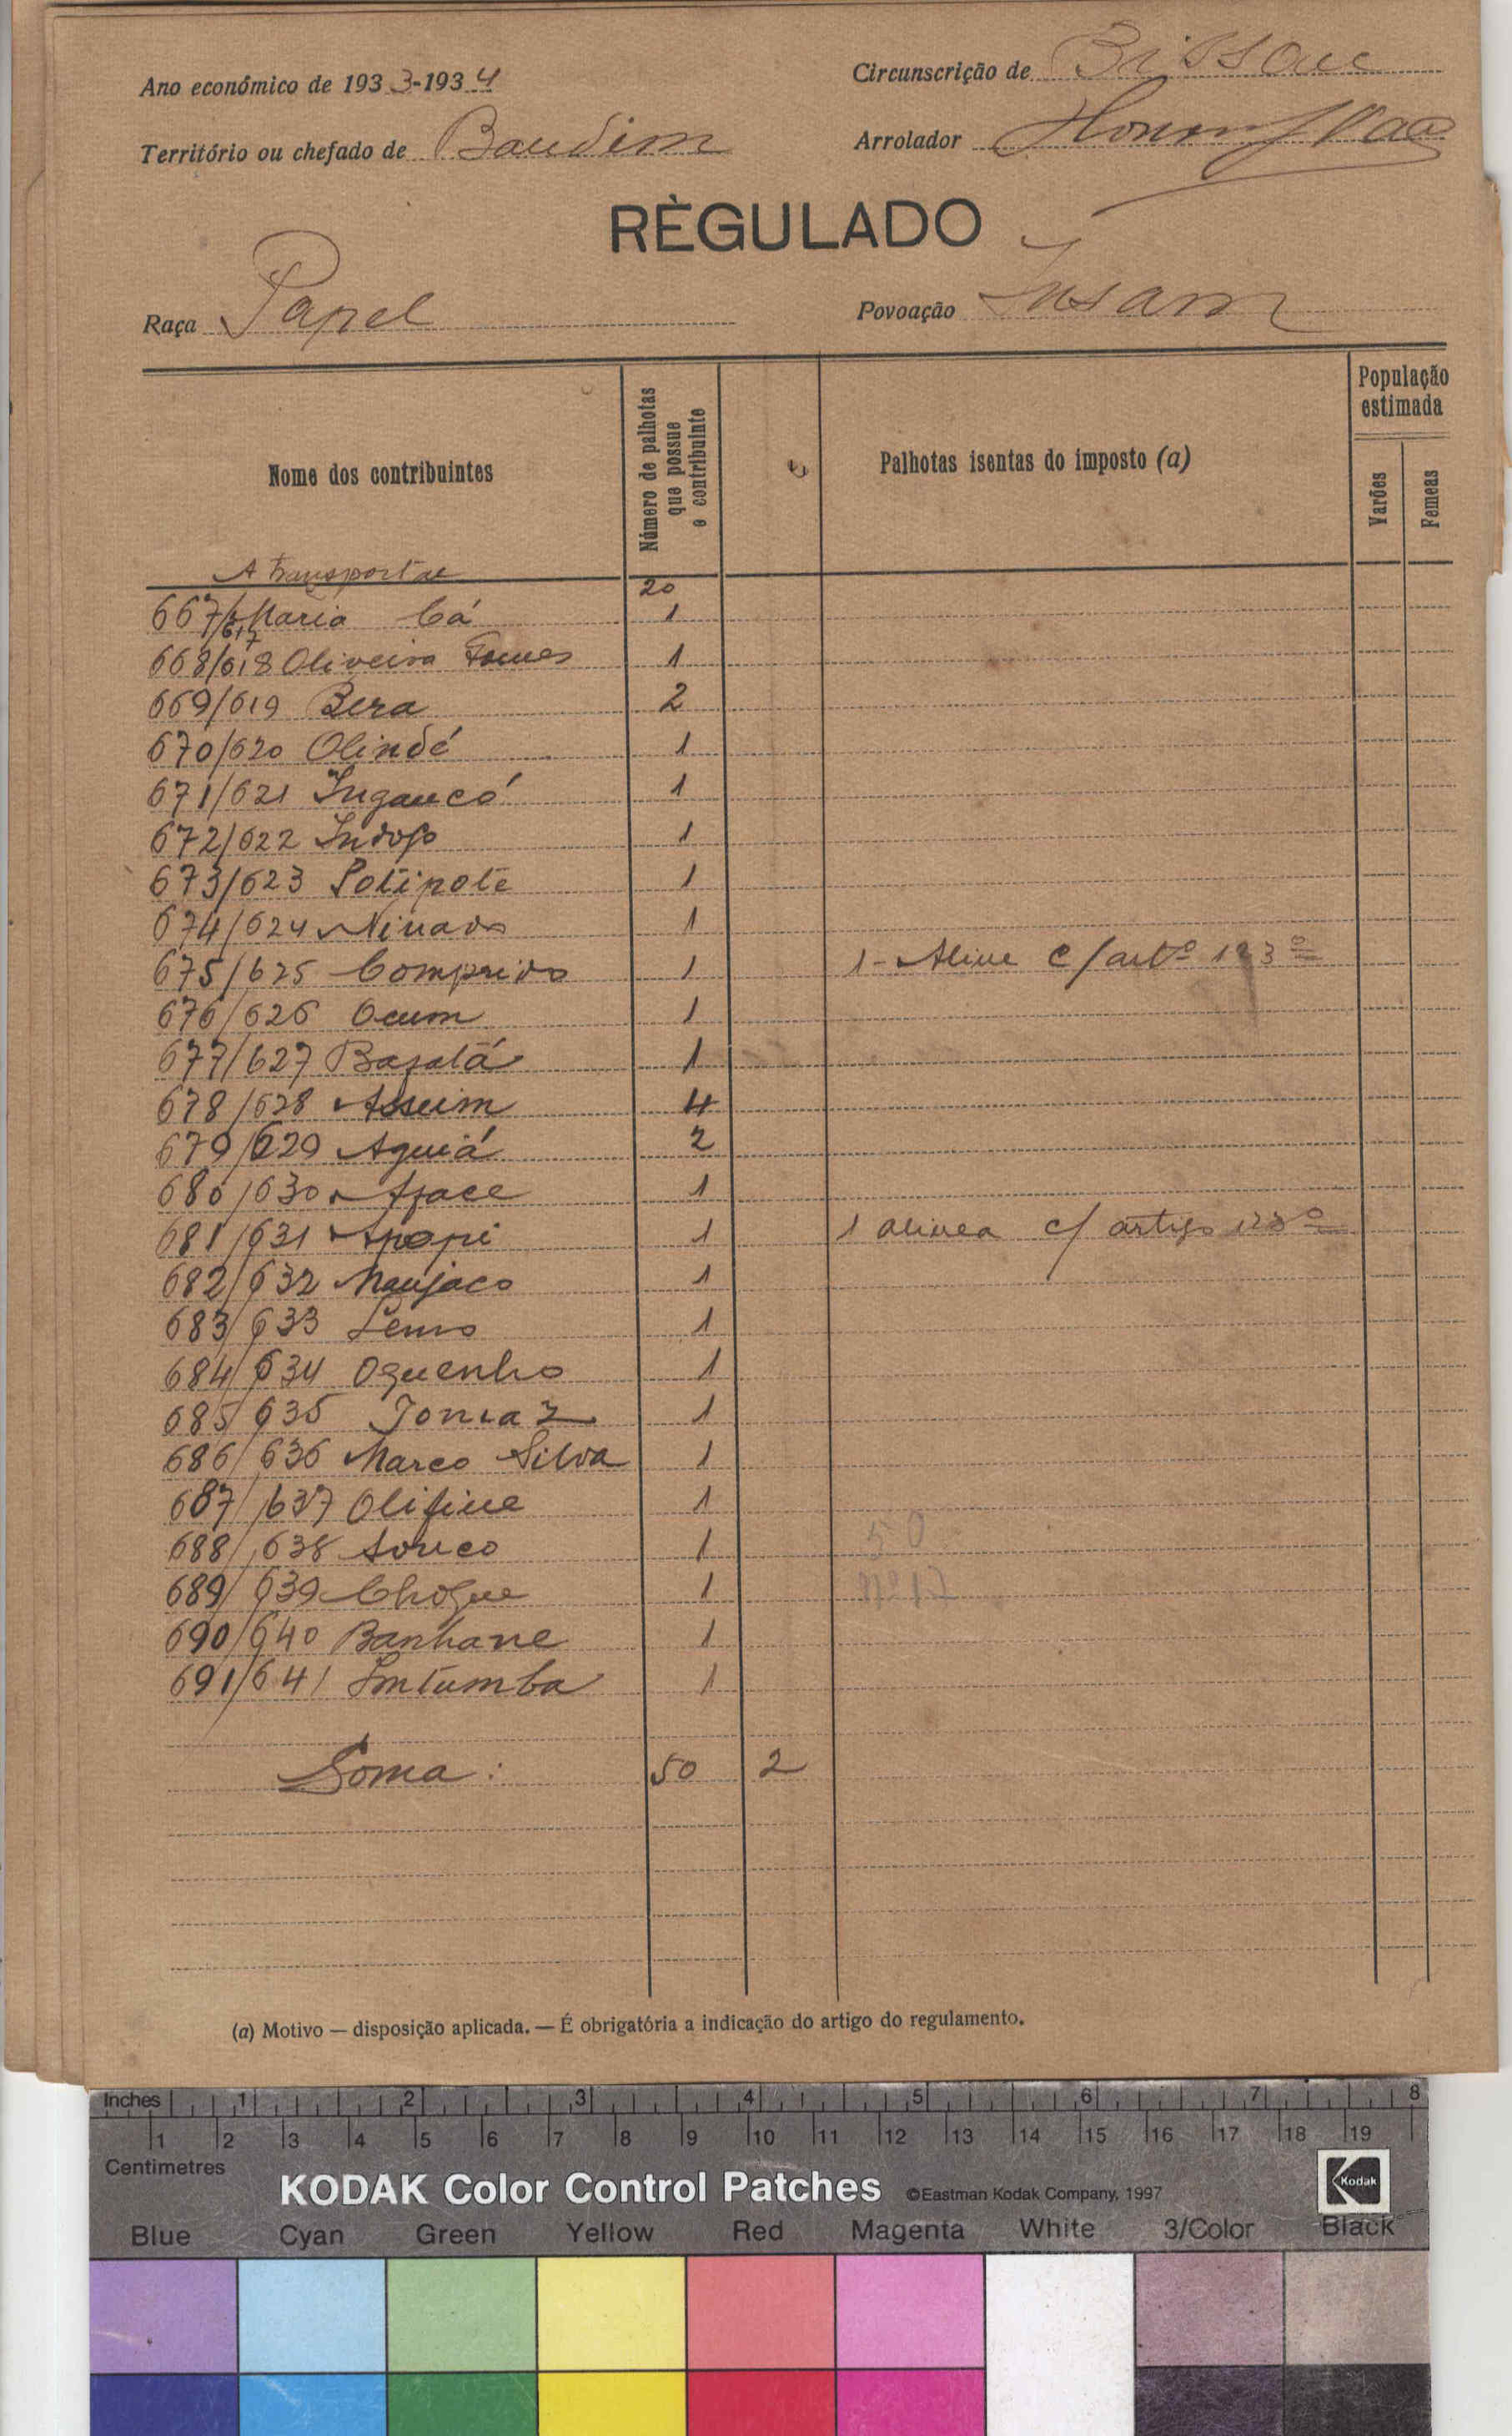 Ano económico de 1933-1934
Circunscrição de Bissau
Território ou chefado de Bandim
Arrolador
RÈGULADO
Raça Papel
Povoação Insam
Nome dos contribuintes
Número de palhotas que possue o contribuinte
Palhotas isentas do imposto (a)
População estimada
Varões
Femeas
A transportar 20
667/617 Maria Cá 1
668/618 Oliveira Gomes 1
669/619 Bera 2
670/620 Olindé 1
671/621 Ingancó 1
672/622 1
673/623 Potipote 1
674/624 1
675/625 Comprido 1 1- c/artº 123º
676/626 Ocum 1
677/627 1
678/628 Asseim 4
679/629 Aguiá 2
680/630 1
681/631 Apopi 1 1 alinea c/ artigo 123º
682/632 Manjaco 1
683/633 1
684/634 Oquenho 1
685/635 Tomaz 1
686/636 Marco Silva 1
687/637 1
688/638 1
689/639 1
690/640 Banhane 1
691/641 Intumba 1
Soma: 50 2
(a) Motivo — disposição aplicada. — É obrigatória a indicação do artigo do regulamento.
Inches 1 2 3 4 5 6 7 8
1 2 3 4 5 6 7 8 9 10 11 12 13 14 15 16 17 18 19
Centimetres
KODAK Color Control Patches ©Eastman Kodak Company, 1997 Kodak
Blue Cyan Green Yellow Red Magenta White 3/Color Black